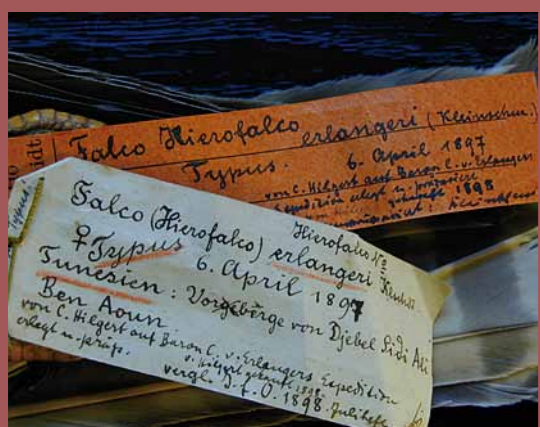 idt
Falco Hierofalco erlangeri (Kleinschm.)
Typus. 6. April 1897
von C. Hilgert auf Baron C. v. Erlangers
Expedition erlegt u. präpariert
gekauft 1898
Typus
Hierofalco
Falco (Hierofalco) erlangeri Kleinschm.
♀ Typus 6. April 1897
Tunesien: Vorgebirge von Djebel Sidi Ali
Ben Aoun
von C. Hilgert auf Baron C. v. Erlangers Expedition
erlegt u. präp. v. Hilgert gekauft 1898.
vergl. J. f. O. 1898. Juliheft